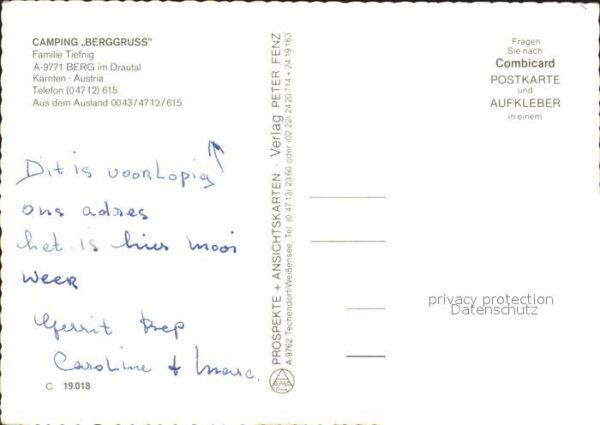 CAMPING „BERGGRUSS"
Familie Tiefnig
A-9771 BERG im Drautal
Kärnten - Austria
Telefon (04712) 615
Aus dem Ausland 0043/4712/615
Dit is voorlopig
ons adres
het is hier mooi
weer
Gerrit Bep
Caroline + Marc.
C 19.018
PROSPEKTE + ANSICHTSKARTEN · Verlag PETER FENZ
A-9762 Techendorf/Weißensee, Tel. (0 47 13) 23 60 oder (02 22) 24 20 7 14 + 24 19 163
ALPINA
Fragen
Sie nach
Combicard
POSTKARTE
und
AUFKLEBER
in einem
privacy protection
Datenschutz